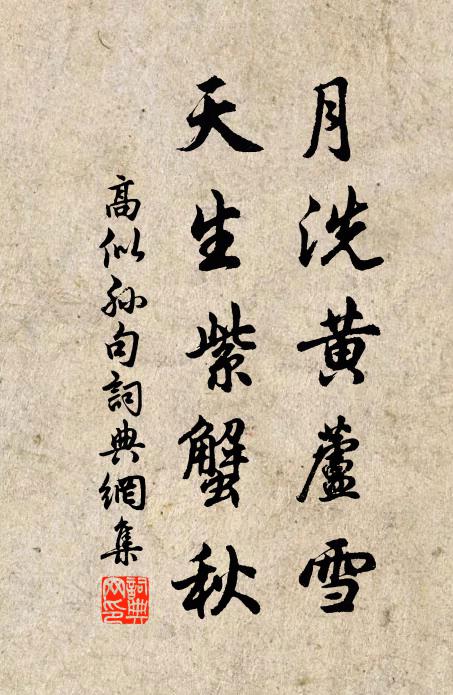 月洗黃蘆雪
天生紫蟹秋
高似孫句詞典網集
詞典網印